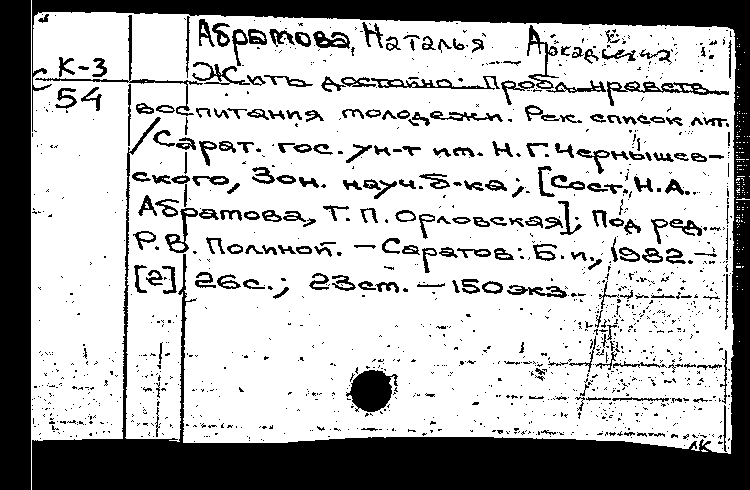 Абрамова, Наталья Аркадьевна
К-3
54
Жить достойно: Пробл. нравств.
воспитания молодежи. Рек. список лит.
/Сарат. гос. ун-т им. Н.Г.Чернышев-
ского, Зон. науч. б-ка; [Сост. Н.А.
Абрамова, Т.П.Орловская]; Под ред.
Р.В. Полиной. — Саратов: Б.и., 1982. —
[2], 26с.; 23см. — 150экз.